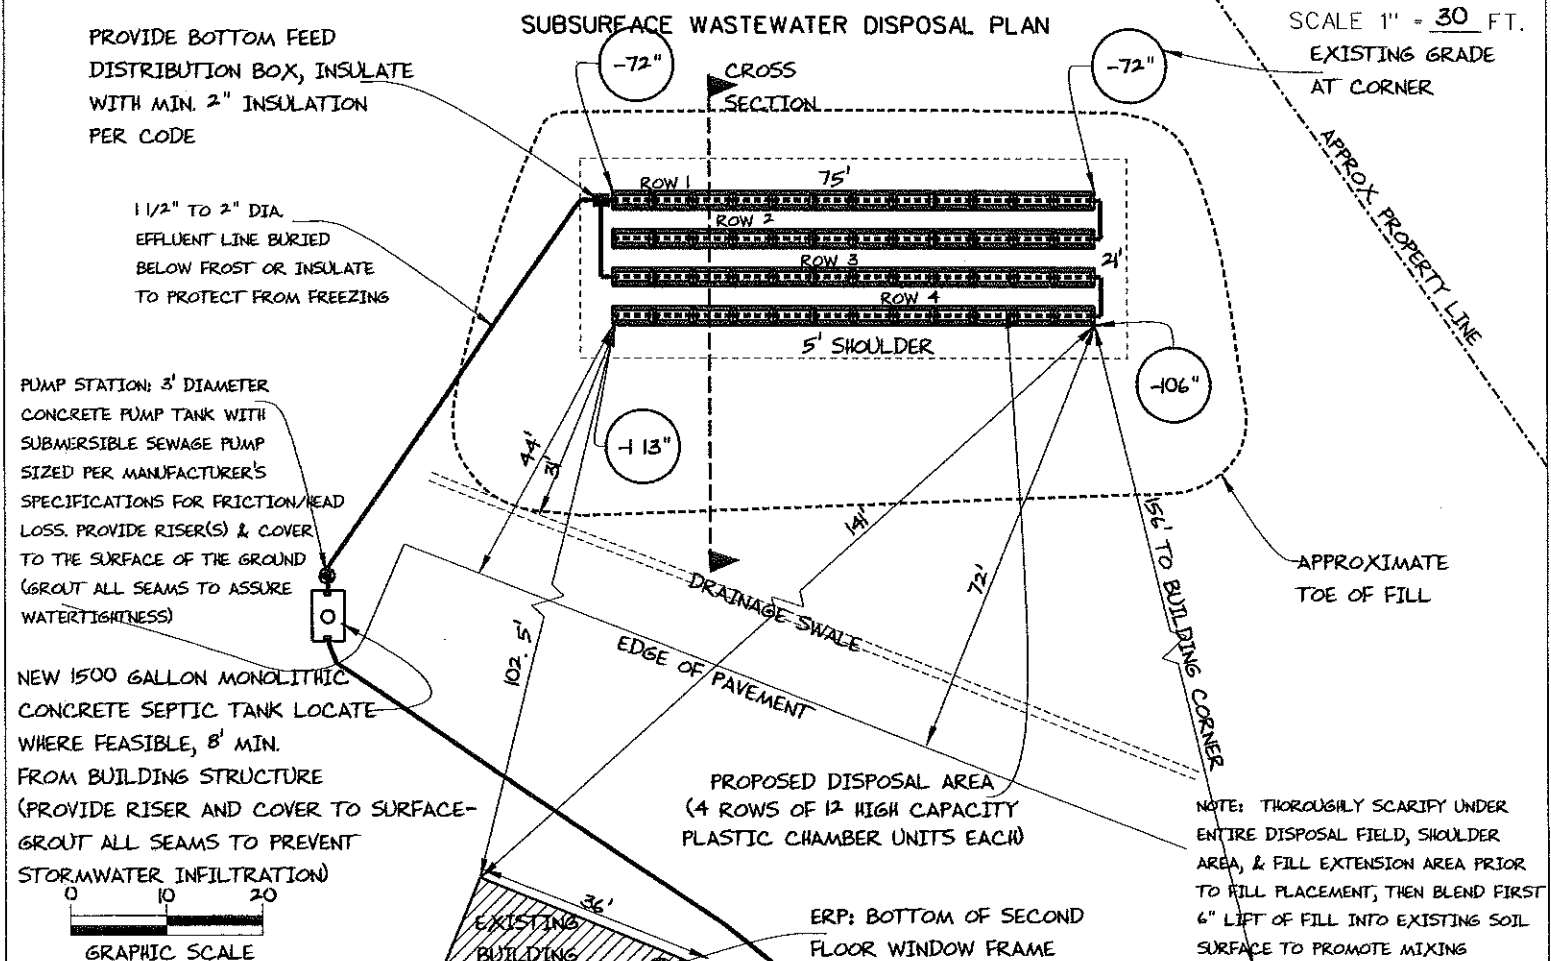 SUBSURFACE WASTEWATER DISPOSAL PLAN
SCALE 1" = 30 FT.
PROVIDE BOTTOM FEED
DISTRIBUTION BOX, INSULATE
WITH MIN. 2" INSULATION
PER CODE
-72"
CROSS
SECTION
-72"
EXISTING GRADE
AT CORNER
APPROX PROPERTY LINE
1 1/2" TO 2" DIA.
EFFLUENT LINE BURIED
BELOW FROST OR INSULATE
TO PROTECT FROM FREEZING
ROW 1
75'
ROW 2
ROW 3
21'
ROW 4
5' SHOULDER
-106"
-113"
PUMP STATION: 3' DIAMETER
CONCRETE PUMP TANK WITH
SUBMERSIBLE SEWAGE PUMP
SIZED PER MANUFACTURER'S
SPECIFICATIONS FOR FRICTION/HEAD
LOSS. PROVIDE RISER(S) & COVER
TO THE SURFACE OF THE GROUND
(GROUT ALL SEAMS TO ASSURE
WATERTIGHTNESS)
44'
31'
141'
72'
102.5'
156' TO BUILDING CORNER
APPROXIMATE
TOE OF FILL
DRAINAGE SWALE
EDGE OF PAVEMENT
NEW 1500 GALLON MONOLITHIC
CONCRETE SEPTIC TANK LOCATE
WHERE FEASIBLE, 8' MIN.
FROM BUILDING STRUCTURE
(PROVIDE RISER AND COVER TO SURFACE-
GROUT ALL SEAMS TO PREVENT
STORMWATER INFILTRATION)
PROPOSED DISPOSAL AREA
(4 ROWS OF 12 HIGH CAPACITY
PLASTIC CHAMBER UNITS EACH)
NOTE: THOROUGHLY SCARIFY UNDER
ENTIRE DISPOSAL FIELD, SHOULDER
AREA, & FILL EXTENSION AREA PRIOR
TO FILL PLACEMENT, THEN BLEND FIRST
6" LIFT OF FILL INTO EXISTING SOIL
SURFACE TO PROMOTE MIXING
0 10 20
GRAPHIC SCALE
36'
EXISTING
BUILDING
ERP: BOTTOM OF SECOND
FLOOR WINDOW FRAME